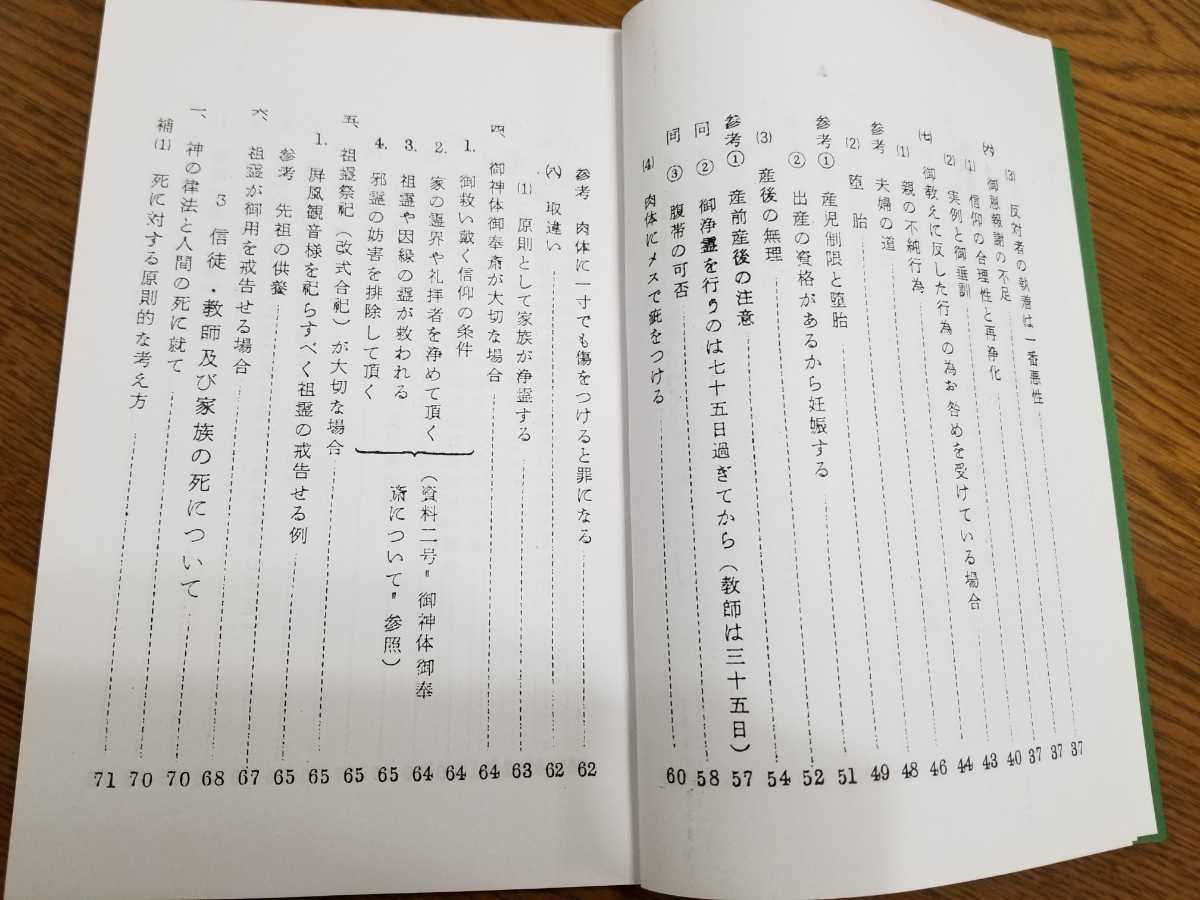 (3) 反対者の執着は一番悪性 37
(六) 御恩報謝の不足 37
(1) 信仰の合理性と再浄化 37
(2) 実例と御垂訓 40
(七) 御教えに反した行為の為お咎めを受けている場合 43
(1) 親の不純行為 44
参考 夫婦の道 46
(2) 堕胎 48
参考① 産児制限と堕胎 49
② 出産の資格があるから妊娠する 51
(3) 産後の無理 52
参考① 産前産後の注意 54
同 ② 御浄霊を行うのは七十五日過ぎてから（教師は三十五日） 57
同 ③ 腹帯の可否 58
(4) 肉体にメスで疵をつける 60
参考 肉体に一寸でも傷をつけると罪になる 62
(八) 取違い 62
(1) 原則として家族が浄霊する 63
四、御神体御奉斎が大切な場合 64
1. 御救い戴く信仰の条件 64
2. 家の霊界や礼拝者を浄めて頂く 64
3. 祖霊や因縁の霊が救われる 65
4. 邪霊の妨害を排除して頂く 65
（資料二号〝御神体御奉
斎について〟参照）
五、祖霊祭祀（改式合祀）が大切な場合 65
1. 屏風観音様を祀らすべく祖霊の戒告せる例 65
参考 先祖の供養 67
六、祖霊が御用を戒告せる場合 68
3 信徒・教師及び家族の死について 70
一、神の律法と人間の死に就て 70
補(1) 死に対する原則的な考え方 71